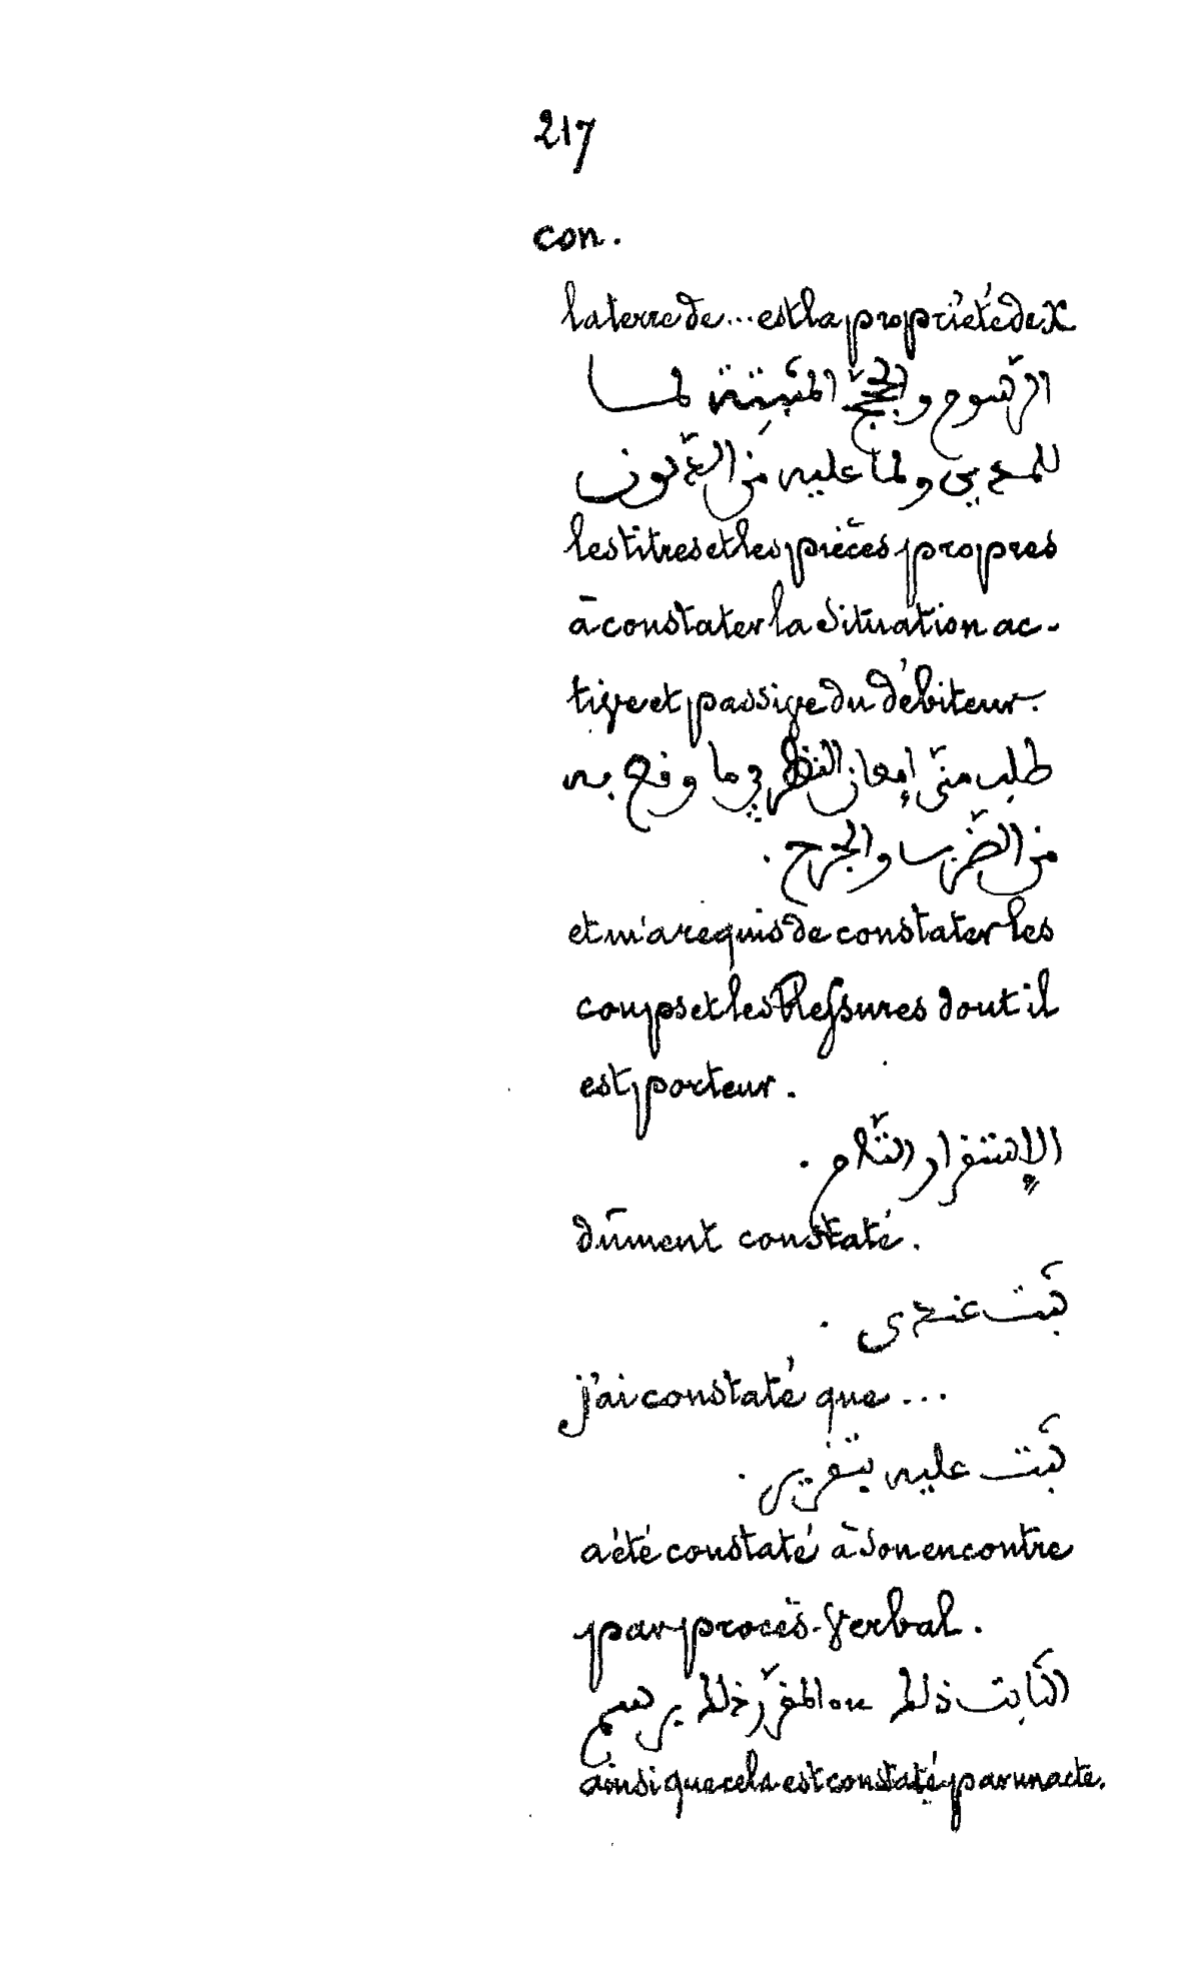 217
con.
la terre de... est la propriété de X
الرّسوم والحجّج المثبتة لما
للمديى ولما عليه من الدّيون
les titres et les pièces propres
à constater la situation ac-
tive et passive du débiteur.
طلب منّى إمعان النّظر في ما وقع به
من الضّرب والجرح.
et m'a requis de constater les
coups et les blessures dont il
est porteur.
الإستقرار التّام.
dûment constaté.
ثبت عندى.
j'ai constaté que...
ثبت عليه بتقريى.
a été constaté à son encontre
par procès-verbal.
الثابت ذلك المقرّر ذلك برسم
ainsi que cela est constaté par un acte.